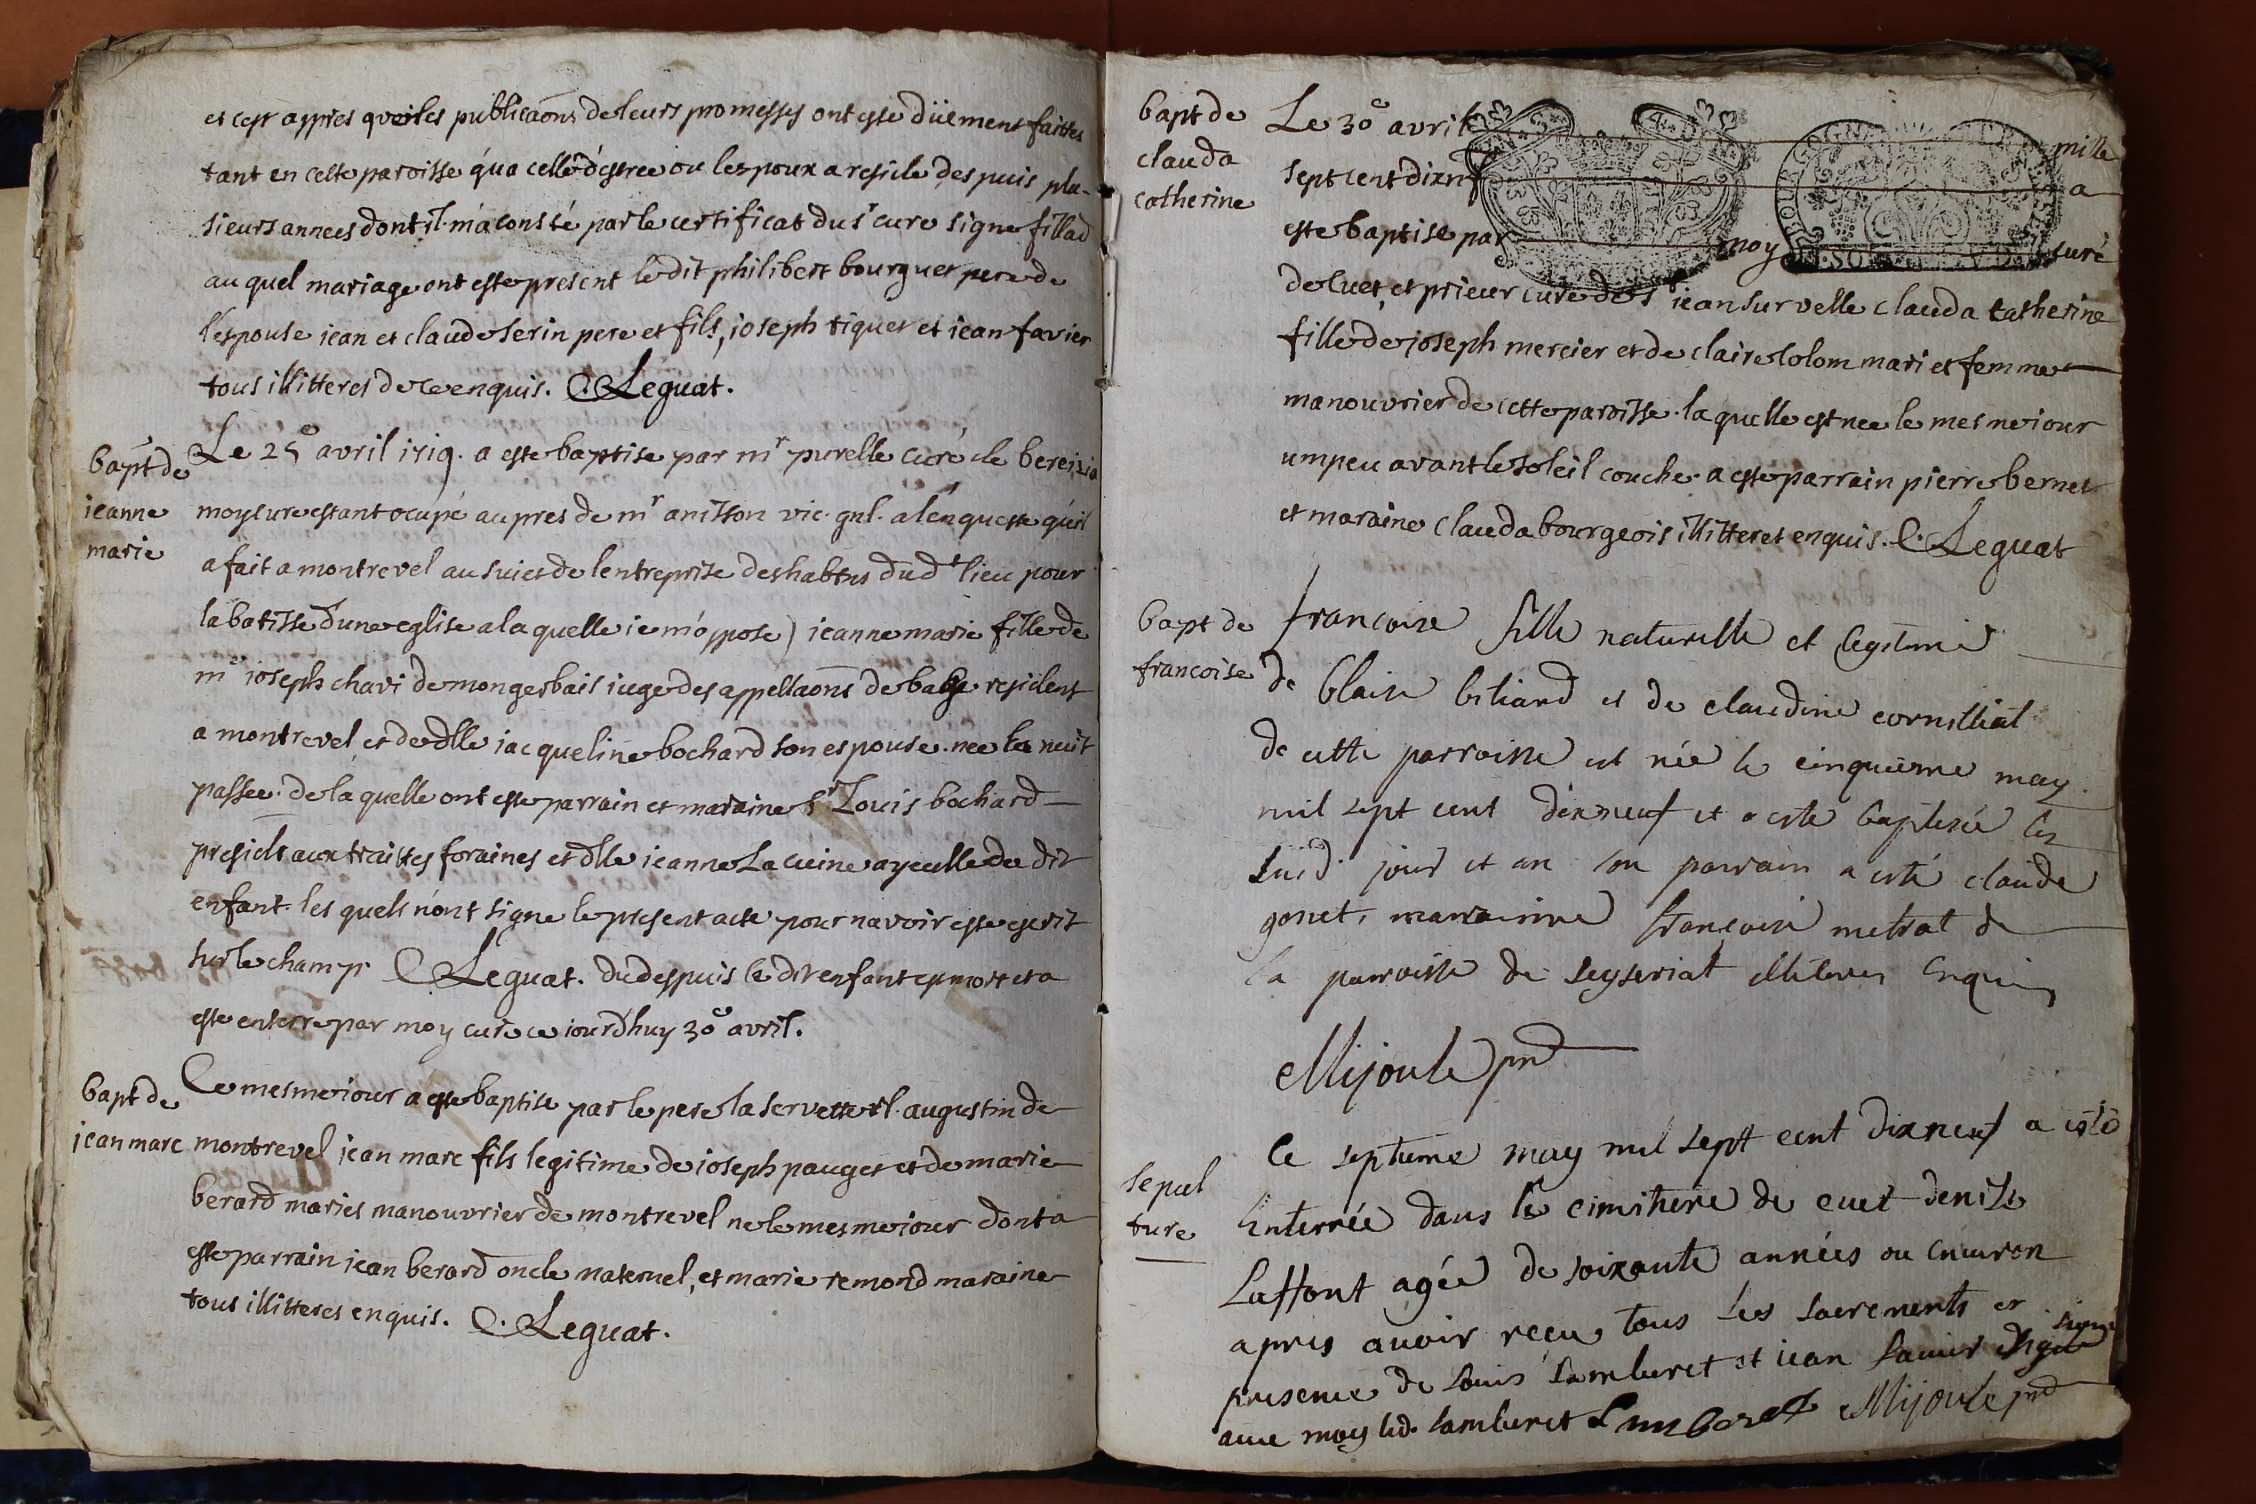 et cest appres que les publicaons de leurs promesses ont este düement faittes
tant en cette paroisse qu'a celle d'estree ou lespoux a reside despuis plu-
sieurs annees dont il m'a consté par le certificat du sr cure signe fillad
au quel mariage ont este present le dit philibert bourguet pere de
l'espouse jean et claude serin pere et fils, joseph tiquet et jean favier
tous illitteres de ce enquis. C. Leguat.
bapt de
jeanne
marie
Le 25e avril 1719. a este baptise par mr purelle curé de bereizia
moy cure estant ocupé au pres de mr anisson vic. gnl. a l'enqueste qu'il
a fait a montrevel au sujet de lentreprise des habtns dudt lieu pour
la batisse d'une eglise a la quelle je m'oppose) jeanne marie fille de
me joseph chavi de mongesbais juge des appellaons de bage resident
a montrevel et de dlle jacqueline bochard son espouse. nee la nuit
passee. de la quelle ont este parrain et maraine sr Louis bochard
presidt aux traittes foraines et dlle jeanne La cuine ayeulle du dit
enfant. les quels n'ont signe le present acte pour navoir este escrit
sur le champ. C Leguat. du despuis le dit enfant est mort et a
este enterre par moy cure ce jourd'huy 30e avril.
bapt de
jean marc
Ce mesme jour a este baptise par le pere la servette rl. augustin de
montrevel jean marc fils legitime de joseph pauget et de marie
berard maries manouvrier de montrevel ne le mesme jour dont a
este parrain jean berard oncle maternel, et marie remond maraine
tous illitteres enquis. C. Leguat.
bapt de
clauda
catherine
Le 30e avril mille
sept cent dixnf a
este baptise par moy curé
de cuet, et prieur cure de st jean sur velle clauda catherine
fille de joseph mercier et de claire colom mari et femme
manouvrier de cette paroisse. la quelle est nee le mesme jour
um peu avant le soleil couche. a este parrain pierre bernet
et maraine clauda bourgeois illitteres enquis. C. Leguat
bapt de
francoise
francoise fille naturelle et legitime
de blaise biliand et de claudine cornilliat
de cette parroisse est née le cinquieme may
mil sept cent dixneuf et a este baptisée les
suid. jour et an son parrain a esté claude
gonet, marrainne francoise metrat de
la parroisse de leyseriat illiteres enquis
Mijoule prd
sepul
ture
Ce septieme may mil sept cent dixneuf a esté
enterrée dans le cimitiere de cuet denise
Laffont agée de soixante années ou environ
apres avoir reçeu tous les sacrements et
presence de louis lamberet et jean signe
avec moy led. lamberet Lamberet Mijoule prd